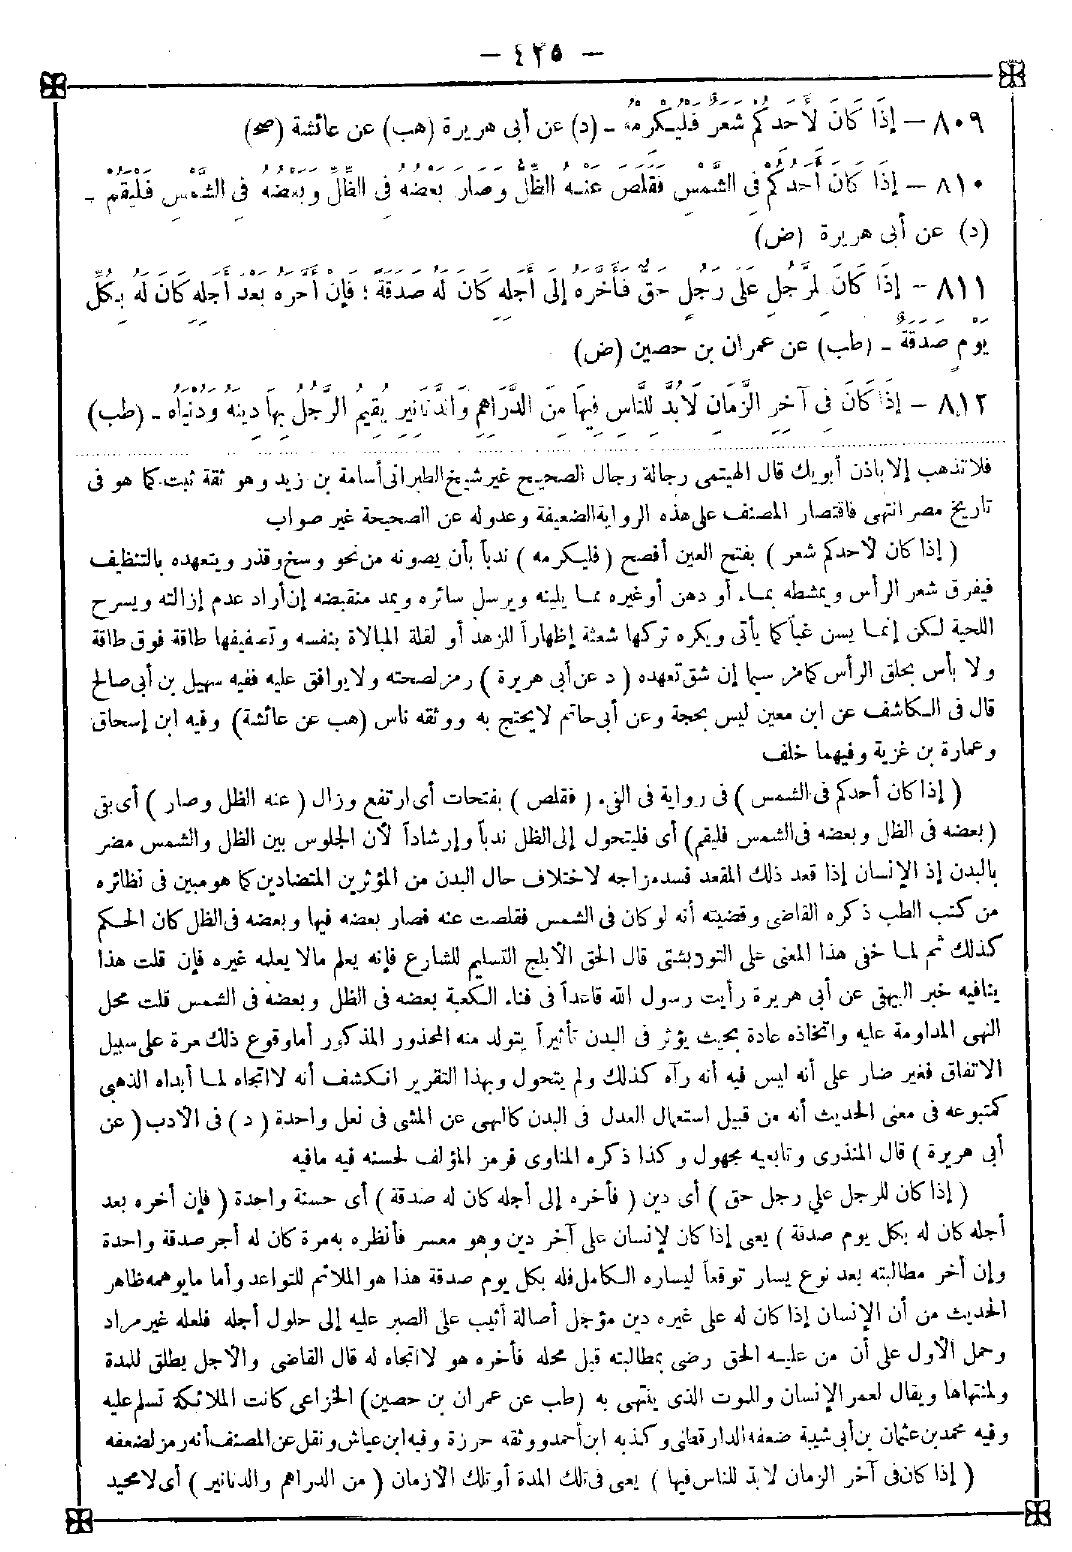 — ٤٢٥ —
٨٠٩ — إِذَا كَانَ لِأَحَدِكُمْ شَعَرٌ فَلْيُكْرِمْهُ ـ (د) عن أبى هريرة (هب) عن عائشة (صح)
٨١٠ — إِذَا كَانَ أَحَدُكُمْ فِى الشَّمْسِ فَقَلَصَ عَنْهُ الظِّلُّ وَصَارَ بَعْضُهُ فِى الظِّلِّ وَبَعْضُهُ فِى الشَّمْسِ فَلْيَقُمْ ـ
(د) عن أبى هريرة (ض)
٨١١ — إِذَا كَانَ لِرَّجُلِ عَلَى رَجُلٍ حَقٌّ فَأَخَّرَهُ إِلَى أَجَلِهِ كَانَ لَهُ صَدَقَةٌ ؛ فَإِنْ أَخَّرَهُ بَعْدَ أَجَلِهِ كَانَ لَهُ بِكُلِّ
يَوْمٍ صَدَقَةٌ ـ (طب) عن عمران بن حصين (ض)
٨١٢ — إِذَا كَانَ فِى آخِرِ الزَّمَانِ لَابُدَّ لِلنَّاسِ فِيهَا مِنَ الدَّرَاهِمِ وَالدَّنَانِيرِ يُقِيمُ الرَّجُلُ بِهَا دِينَهُ وَدُنْيَاهُ ـ (طب)
فلا تذهب إلا باذن أبويك قال الهيتمى رجاله رجال الصحيح غير شيخ الطبرانى أسامة بن زيد وهو ثقة ثبت كما هو فى
تاريخ مصر انتهى فاقتصار المصنف على هذه الرواية الضعيفة وعدوله عن الصحيحة غير صواب
( إذا كان لأحدكم شعر ) بفتح العين أفصح ( فليكرمه ) ندباً بأن يصونه من نحو وسخ وقذر ويتعهده بالتنظيف
فيفرق شعر الرأس ويمشطه بماء أو دهن أو غيره مما يلينه ويرسل سائره ويمد منقبضه إن أراد عدم إزالته ويسرح
اللحية لكن إنما يسن غباً كما يأتى ويكره تركها شعثة إظهاراً للزهد أو لقلة المبالاة بنفسه وتصفيفها طاقة فوق طاقة
ولا بأس بحلق الرأس كما مر سيما إن شق تعهده ( د عن أبى هريرة ) رمز لصحته ولا يوافق عليه ففيه سهيل بن أبى صالح
قال فى الكاشف عن ابن معين ليس بحجة وعن أبى حاتم لا يحتج به ووثقه ناس (هب عن عائشة) وفيه ابن إسحاق
وعمارة بن غزية وفيهما خلف
( إذا كان أحدكم فى الشمس ) فى رواية فى الفىء ( فقلص ) بفتحات أى ارتفع وزال ( عنه الظل وصار ) أى بقى
(بعضه فى الظل وبعضه فى الشمس فليقم) أى فليتحول إلى الظل ندباً وإرشاداً لأن الجلوس بين الظل والشمس مضر
بالبدن إذ الإنسان إذا قعد ذلك المقعد فسد مزاجه لاختلاف حال البدن من المؤثرين المتضادين كما هو مبين فى نظائره
من كتب الطب ذكره القاضى وقضيته أنه لو كان فى الشمس فقلصت عنه فصار بعضه فيها وبعضه فى الظل كان الحكم
كذلك ثم لما خفى هذا المعنى على التوربشتى قال الحق الأبلج التسليم للشارع فإنه يعلم مالا يعلمه غيره فإن قلت هذا
ينافيه خبر البيهقى عن أبى هريرة رأيت رسول الله قاعداً فى فناء الكعبة بعضه فى الظل وبعضه فى الشمس قلت محل
النهى المداومة عليه واتخاذه عادة بحيث يؤثر فى البدن تأثيراً يتولد منه المحذور المذكور أما وقوع ذلك مرة على سبيل
الاتفاق فغير ضار على أنه ليس فيه أنه رآه كذلك ولم يتحول وبهذا التقرير انكشف أنه لا اتجاه لما أبداه الذهبى
كمتبوعه فى معنى الحديث أنه من قبيل استعمال العدل فى البدن كالنهى عن المشى فى نعل واحدة ( د ) فى الأدب ( عن
أبى هريرة ) قال المنذرى وتابعيه مجهول وكذا ذكره المناوى فرمز المؤلف لحسنه فيه مافيه
( إذا كان للرجل على رجل حق ) أى دين ( فأخره إلى أجله كان له صدقة ) أى حسنة واحدة ( فإن أخره بعد
أجله كان له بكل يوم صدقة ) يعى إذا كان لإنسان على آخر دين وهو معسر فأنظره به مرة كان له أجر صدقة واحدة
وإن أخر مطالبته بعد نوع يسار توقعاً ليساره الكامل فله بكل يوم صدقة هذا هو الملائم للقواعد وأما ما يوهمه ظاهر
الحديث من أن الإنسان إذا كان له على غيره دين مؤجل أصالة أثيب على الصبر عليه إلى حلول أجله فلعله غير مراد
وحمل الأول على أن من عليه الحق رضى بمطالبته قبل محله فأخره هو لا اتجاه له قال القاضى والأجل يطلق للمدة
ولمنتهاها ويقال لعمر الإنسان وللموت الذى ينتهى به (طب عن عمران بن حصين) الخزاعى كانت الملائكة تسلم عليه
وفيه محمد بن عثمان بن أبى شيبة ضعفه الدارقطنى وكذبه ابن أحمد ووثقه حرزة وفيه ابن عياش ونقل عن المصنف أنه رمز لضعفه
( إذا كان فى آخر الزمان لا بدّ للناس فيها ) يعى فى تلك المدة أو تلك الأزمان ( من الدراهم والدنانير ) أى لا محيد